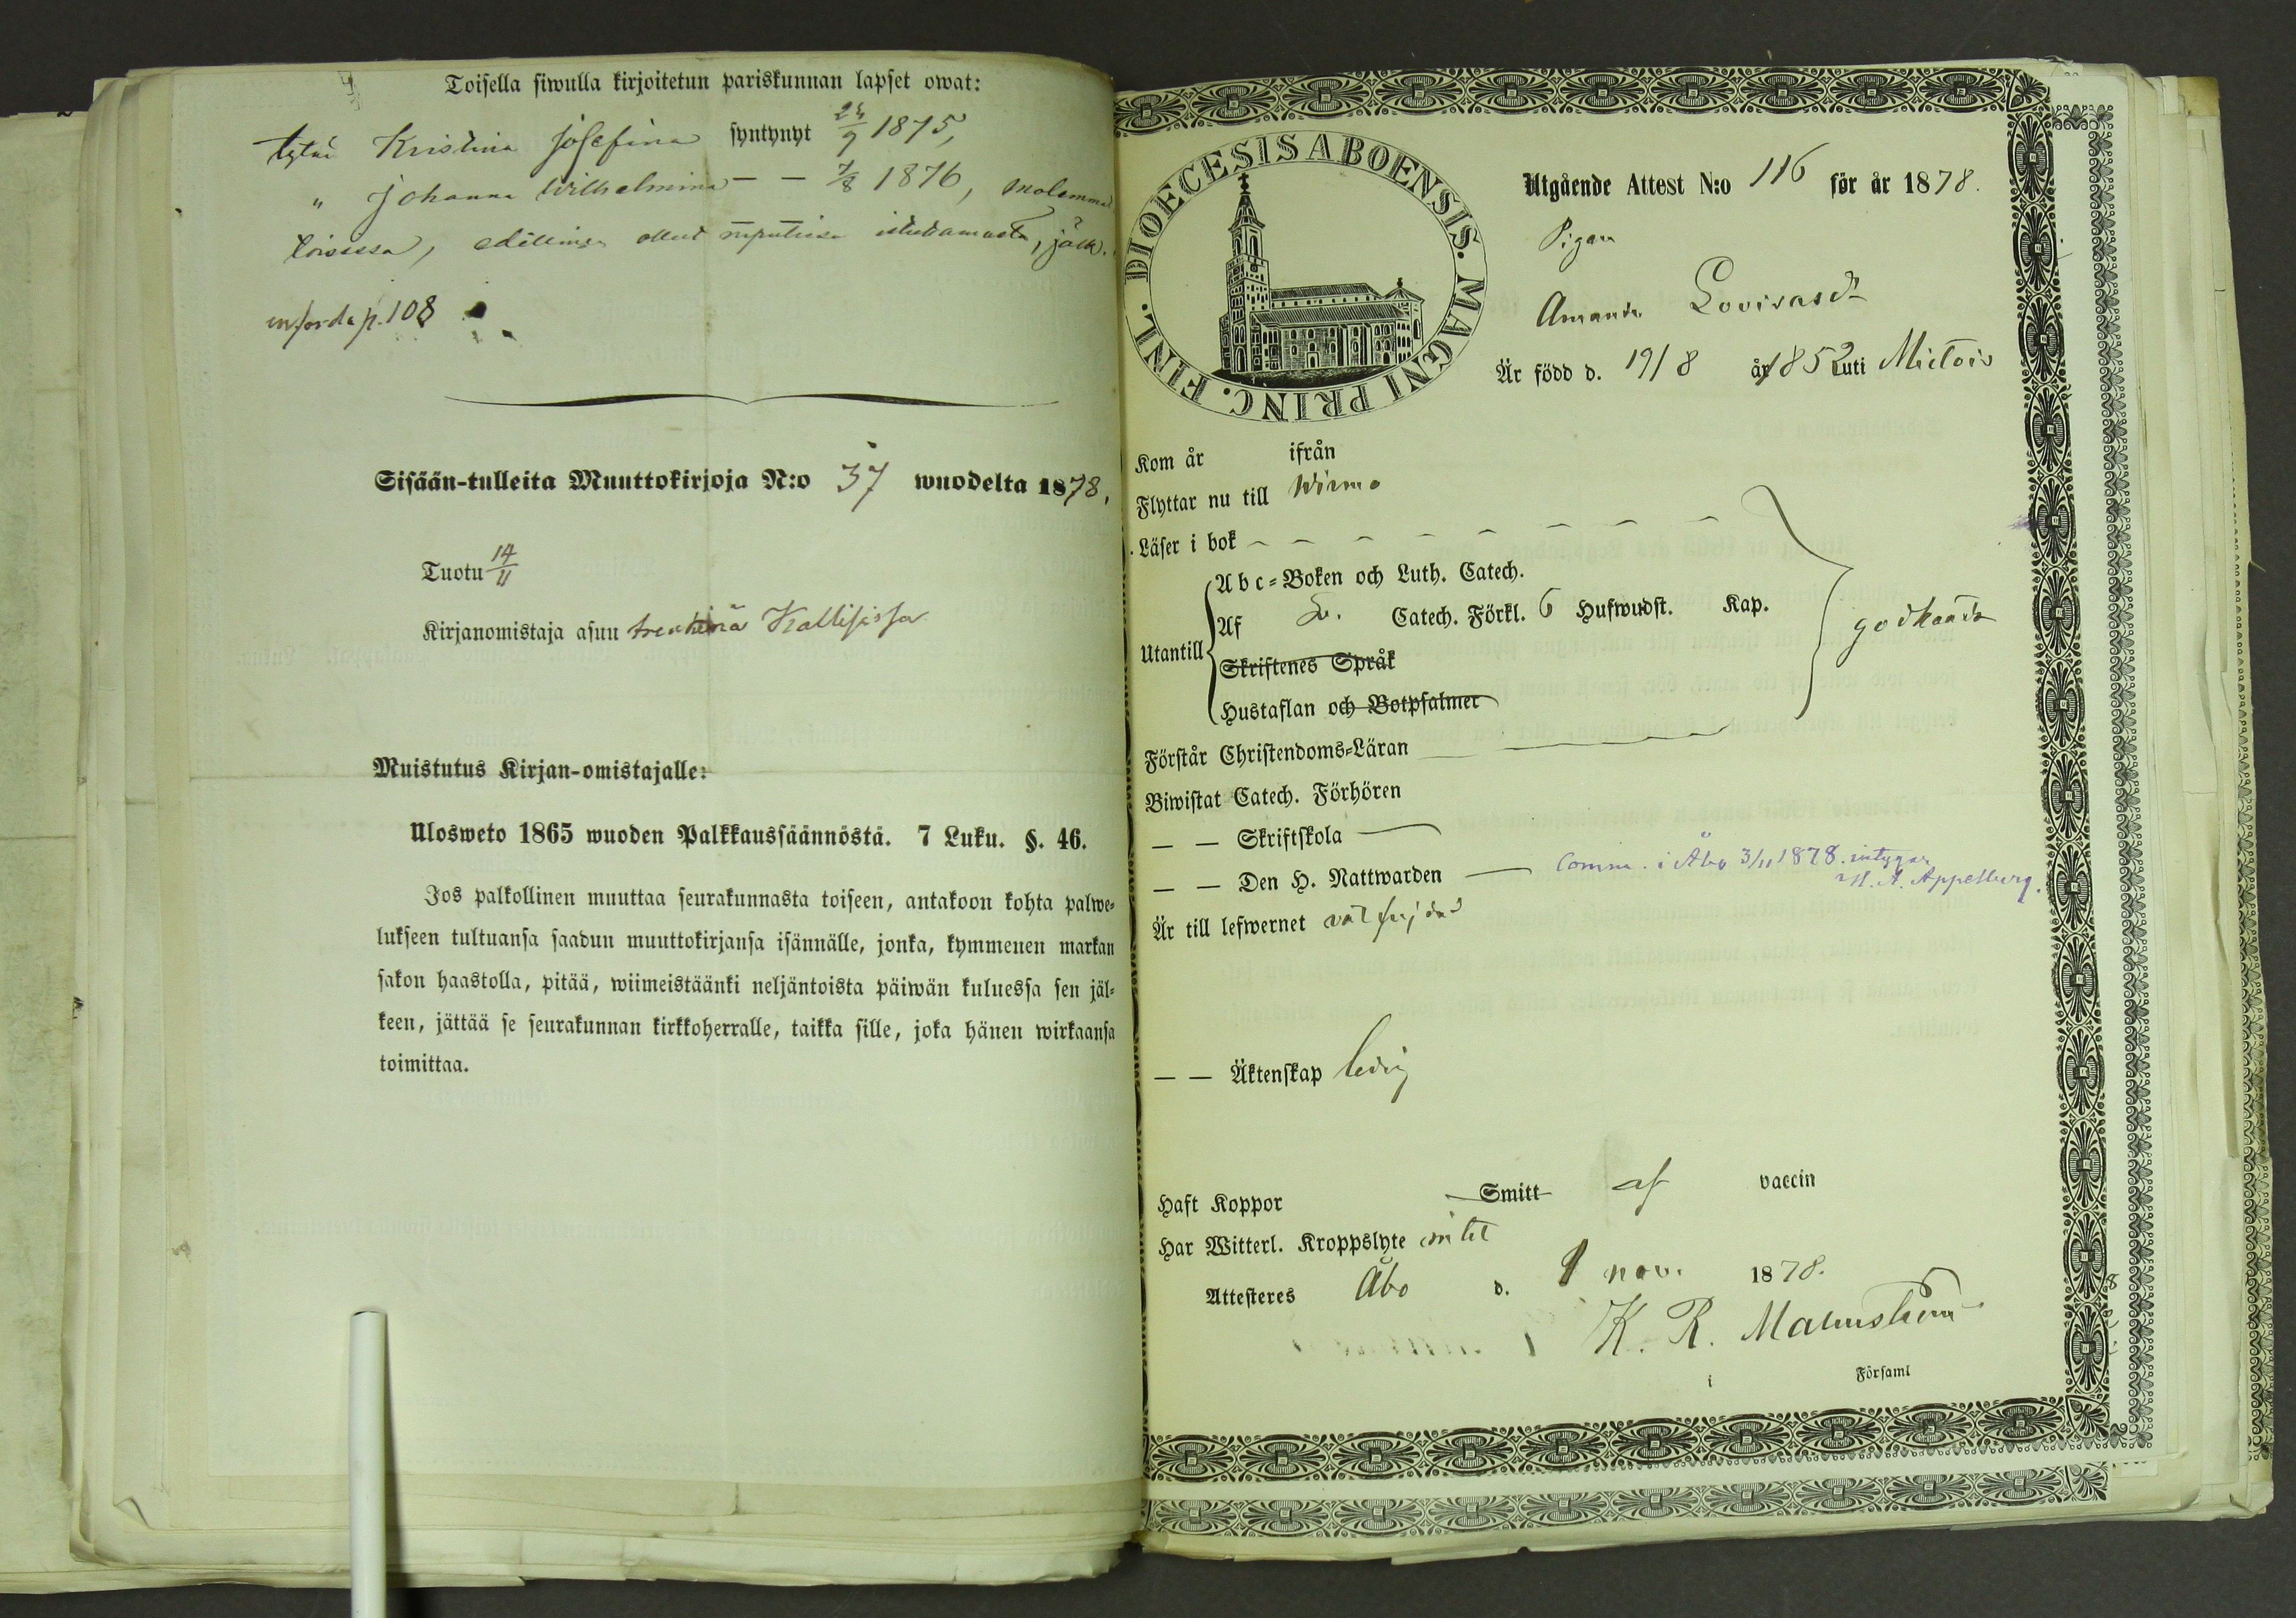 Toisella siwulla kirjoitetun pariskunnan lapset owat:
tytär Kristina Josefina syntynyt 24/9 1875,
" Johanna Wilhelmina — — 7/8 1876, molemmat
toisessa, edellinen ollut istuttamasta, jälk.
införda p. 108
Sisään-tulleita Muuttokirjoja N:o 37 wuodelta 1878,
Tuotu 14/11
Kirjanomistaja asuu Kallisissa
Muistutus Kirjan-omistajalle:
Ulosweto 1865 wuoden Palkkaussäännöstä. 7 Luku. §. 46.
Jos palkollinen muuttaa seurakunnasta toiseen, antakoon kohta palwe-
lukseen tultuansa saadun muuttokirjansa isännälle, jonka, kymmenen markan
sakon haastolla, pitää, wiimeistäänki neljäntoista päiwän kuluessa sen jäl-
keen, jättää se seurakunnan kirkkoherralle, taikka sille, joka hänen wirkaansa
toimittaa.
DIOECESIS ABOENSIS. MAGNI PRINC. FINL.
Utgående Attest N:o 116 för år 1878.
Pigan
Amanda Lovisasdr
Är född d. 19/8 år 1852 uti Mietois
Kom år ifrån
Flyttar nu till Wirmo
Läser i bok
Utantill
Abc-Boken och Luth. Catech.
Af Sv. Catech. Förkl. 6 Hufwudst. Kap.
Skriftenes Språk
Hustaflan och Botpsalmer
godkändt
Förstår Christendoms-Läran
Biwistat Catech. Förhören
— — Skriftskola
— — Den H. Nattwarden — Comm. i Åbo 3/11 1878. intygar
A. Appelberg.
Är till lefwernet välfrejdad
— — Äktenskap ledig
Haft Koppor Smitt af vaccin
Har Witterl. Kroppslyte intet
Attesteres Åbo d. 1 nov. 1878.
K. R. Malmström
i Församl